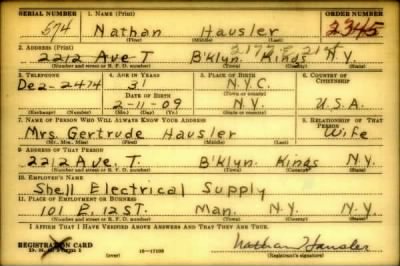 SERIAL NUMBER 1. NAME (Print) ORDER NUMBER
574 Nathan Hausler 2345
(First) (Middle) (Last)
2. ADDRESS (Print) 2177 E 21st
2212 Ave T B'klyn Kinds N.Y.
(Number and street or R. F. D. number) (Town) (County) (State)
3. TELEPHONE 4. AGE IN YEARS 5. PLACE OF BIRTH 6. COUNTRY OF CITIZENSHIP
De2-2474 31 N.Y.C.
DATE OF BIRTH (Town or county)
2-11-09 N.Y. U.S.A.
(Exchange) (Number) (Mo.) (Day) (Yr.) (State or country)
7. NAME OF PERSON WHO WILL ALWAYS KNOW YOUR ADDRESS 8. RELATIONSHIP OF THAT PERSON
Mrs. Gertrude Hausler Wife
(Mr., Mrs., Miss) (First) (Middle) (Last)
9. ADDRESS OF THAT PERSON
2212 Ave. T. B'klyn. Kinds N.Y.
(Number and street or R. F. D. number) (Town) (County) (State)
10. EMPLOYER'S NAME
Shell Electrical Supply
11. PLACE OF EMPLOYMENT OR BUSINESS
101 E. 12 ST. Man. N.Y. N.Y.
(Number and street or R. F. D. number) (Town) (County) (State)
I AFFIRM THAT I HAVE VERIFIED ABOVE ANSWERS AND THAT THEY ARE TRUE.
REGISTRATION CARD
D. S. S. Form 1 (over) 16-17105 Nathan Hausler
(Registrant's signature)